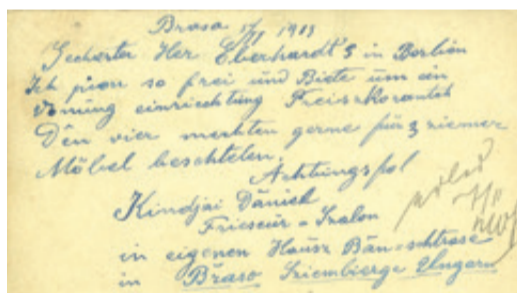 Braso 5/VI 1913
Geehrter Her Eberhardt's in Berlin
Ich pion so frei und Biete um ein
Vonung einriechtung Preiszkorantd
Den vier mechten gerne für 3 ziemer
Möbel beschtelen.
Achtungsfol
Kindjai Däniel
Frieseur = Szalon
in eigenen Hausz Bän=schtrase
in Braso Sziembierge Ungarn